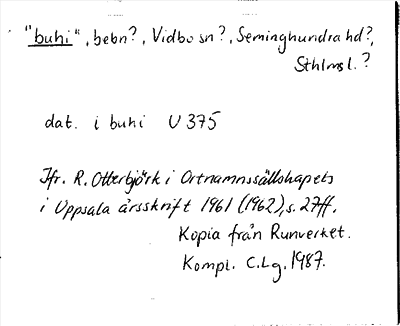 "buhi", bebn?, Vidbo sn?, Seminghundra hd?,
Sthlms l.?
dat. i buhi U 375
Jfr. R. Otterbjörk i Ortnamnssällskapets
i Uppsala årsskrift 1961 (1962), s. 27ff.
Kopia från Runverket.
Kompl. C.Lg. 1987.